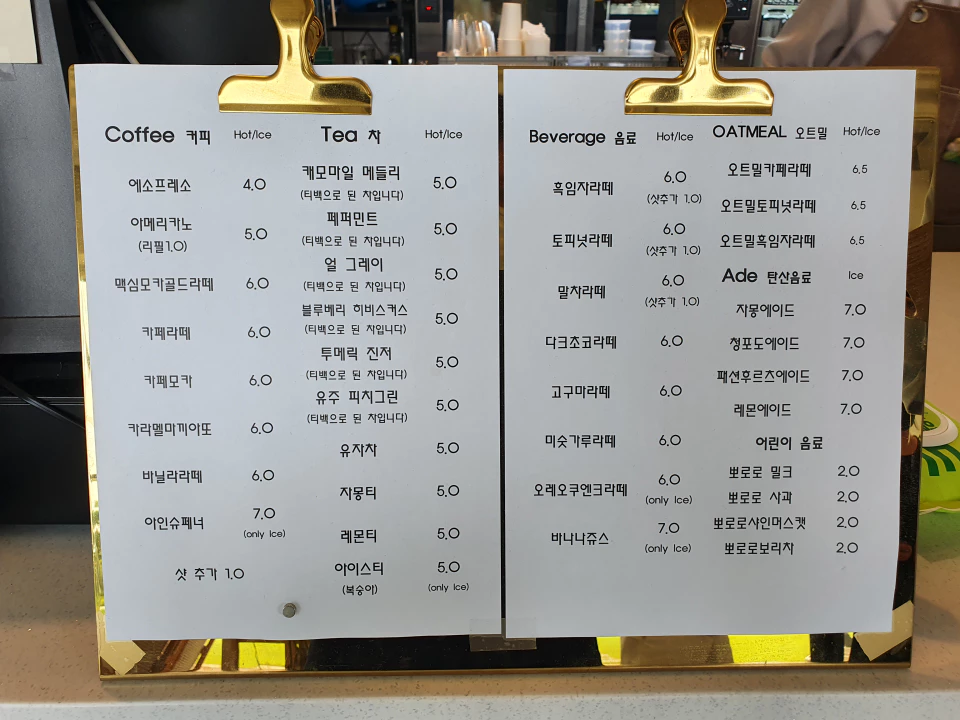 Coffee 커피 Hot/Ice
에소프레소 4.0
아메리카노 5.0
(리필1.0)
맥심모카골드라떼 6.0
카페라떼 6.0
카페모카 6.0
카라멜마끼아또 6.0
바닐라라떼 6.0
아인슈페너 7.0
(only Ice)
샷 추가 1.0
Tea 차 Hot/Ice
캐모마일 메들리 5.0
(티백으로 된 차입니다)
페퍼민트 5.0
(티백으로 된 차입니다)
얼 그레이 5.0
(티백으로 된 차입니다)
블루베리 히비스커스 5.0
(티백으로 된 차입니다)
투메릭 진저 5.0
(티백으로 된 차입니다)
유주 피치그린 5.0
(티백으로 된 차입니다)
유자차 5.0
자몽티 5.0
레몬티 5.0
아이스티 5.0
(복숭아) (only Ice)
Beverage 음료 Hot/Ice
흑임자라떼 6.0
(샷추가 1.0)
토피넛라떼 6.0
(샷추가 1.0)
말차라떼 6.0
(샷추가 1.0)
다크초코라떼 6.0
고구마라떼 6.0
미숫가루라떼 6.0
오레오쿠앤크라떼 6.0
(only Ice)
바나나쥬스 7.0
(only Ice)
OATMEAL 오트밀 Hot/Ice
오트밀카페라떼 6.5
오트밀토피넛라떼 6.5
오트밀흑임자라떼 6.5
Ade 탄산음료 Ice
자몽에이드 7.0
청포도에이드 7.0
패션후르츠에이드 7.0
레몬에이드 7.0
어린이 음료
뽀로로 밀크 2.0
뽀로로 사과 2.0
뽀로로샤인머스캣 2.0
뽀로로보리차 2.0